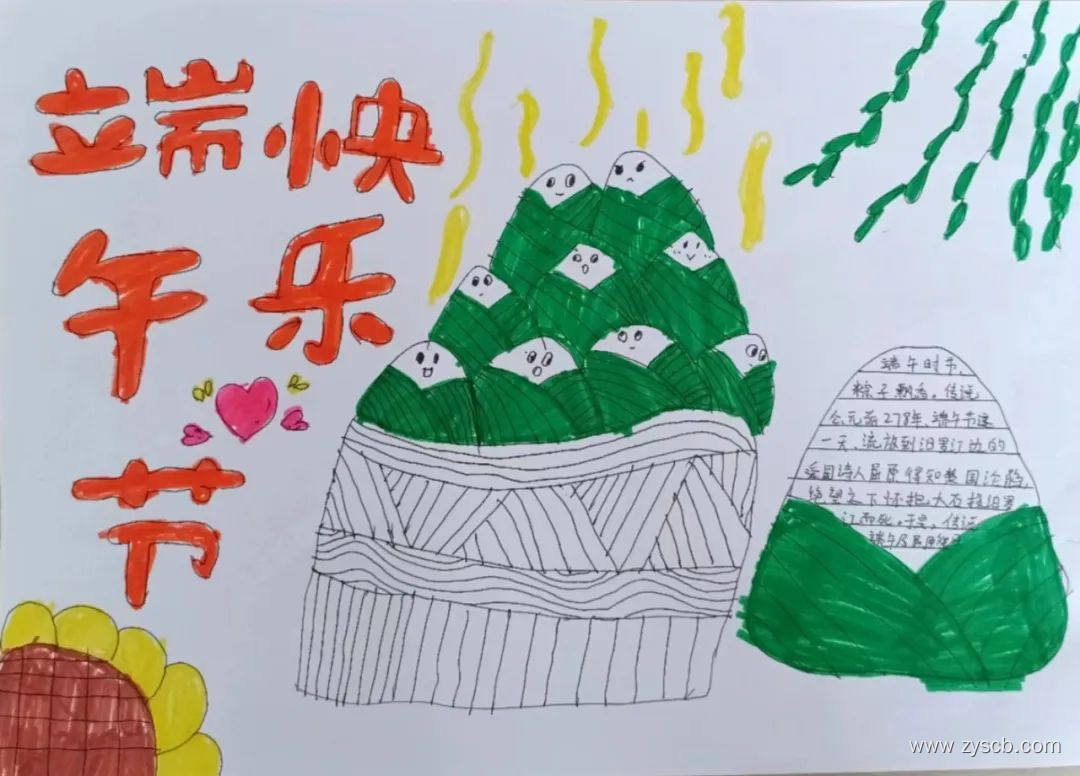 端午节
快乐
端午时节,
粽子飘香。传说
公元前278年,端午节这
一天,流放到汨罗江边的
爱国诗人屈原得知楚国沦陷,
绝望之下怀抱大石投汨罗
江而死。于是,传说
端午及屈原
www.zyscb.com